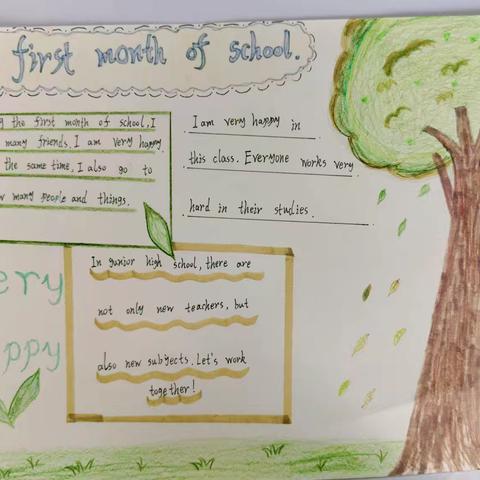 first month of school.
the first month of school, I
many friends. I am very happy.
the same time, I also go to
many people and things.
I am very happy in
this class. Everyone works very
hard in their studies.
In junior high school, there are
not only new teachers, but
also new subjects. Let's work
together!